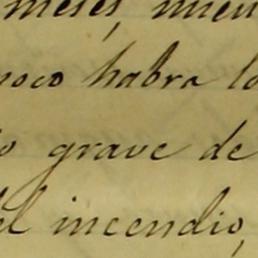 meses, mien
poco habra lo
o grave de
el incendio,